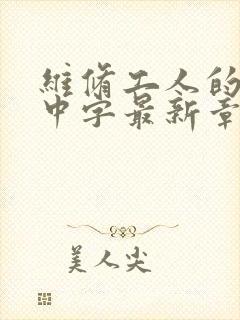 維脩工人的
中字最新章
美人尖